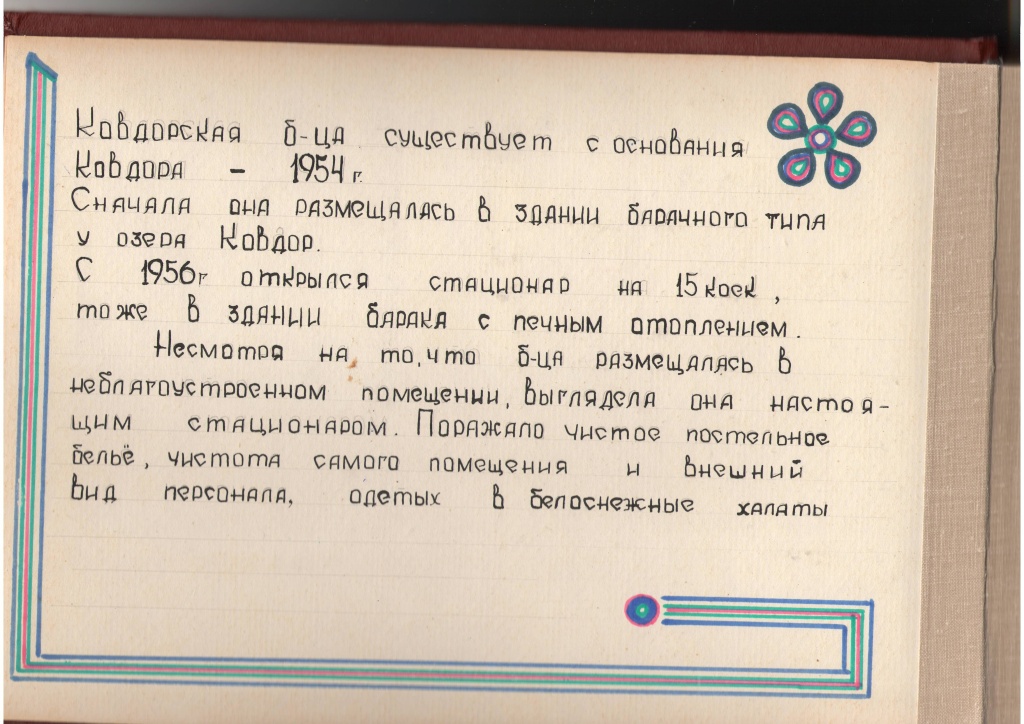 Ковдорская б-ца существует с основания
Ковдора - 1954 г.
Сначала она размещалась в здании барачного типа
у озера Ковдор.
С 1956г открылся стационар на 15 коек,
тоже в здании барака с печным отоплением.
Несмотря на то, что б-ца размещалась в
неблагоустроенном помещении, выглядела она настоя-
щим стационаром. Поражало чистое постельное
бельё, чистота самого помещения и внешний
вид персонала, одетых в белоснежные халаты